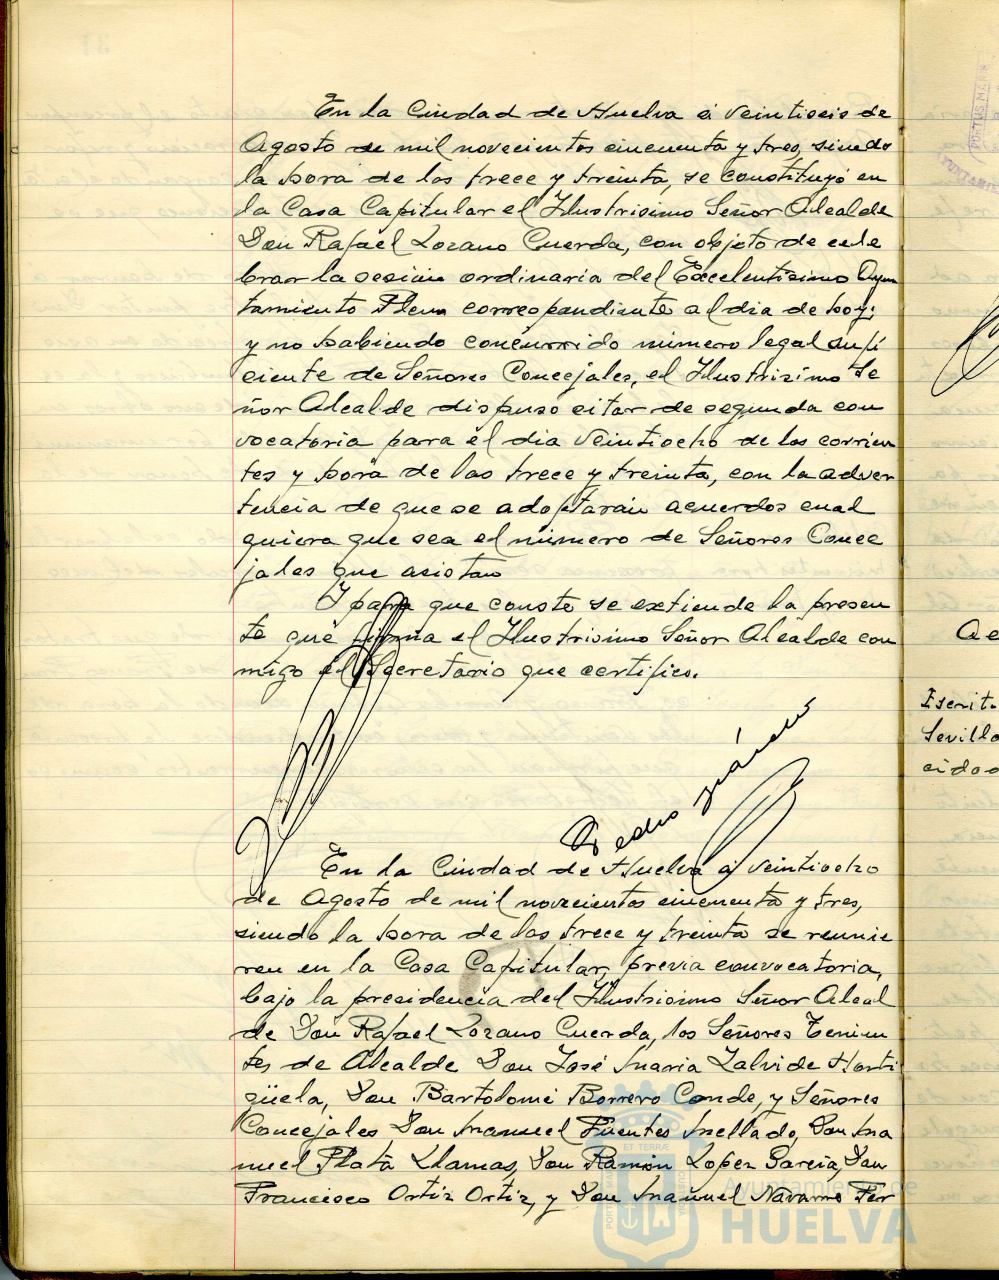 En la Ciudad de Huelva á veintiseis de
Agosto de mil novecientos cincuenta y tres, siendo
la hora de las trece y treinta, se constituyó en
la Casa Capitular el Ilustrisimo Señor Alcalde
Don Rafael Lozano Cuerda, con objeto de cele
brar la sesión ordinaria del Excelentisimo Ayun
tamiento Pleno correspondiente al dia de hoy;
y no habiendo concurrido número legal sufi
ciente de Señores Concejales, el Ilustrisimo Se
ñor Alcalde dispuso citar de segunda con
vocatoria para el dia veintiocho de los corrien
tes y hora de las trece y treinta, con la adver
tencia de que se adoptarán acuerdos cual
quiera que sea el número de Señores Conce
jales que asistan
Y para que conste se extiende la presen
te que firma el Ilustrisimo Señor Alcalde con
migo el Secretario que certifico.
Pedro
En la Ciudad de Huelva á veintiocho
de Agosto de mil novecientos cincuenta y tres,
siendo la hora de las trece y treinta se reunie
ron en la Casa Capitular, previa convocatoria,
bajo la presidencia del Ilustrisimo Señor Alcal
de Don Rafael Lozano Cuerda, los Señores Tenien
tes de Alcalde Don José Maria Zalvide Horti
güela, Don Bartolomé Borrero Conde, y Señores
Concejales Don Manuel Fuentes Mellado, Don Ma
nuel Plata Llamas, Don Ramón Lopez Garcia, Don
Francisco Ortiz Ortiz, y Don Manuel Navarro Fer
Ayuntamiento de
HUELVA
Escrit
Sevilla
cidad